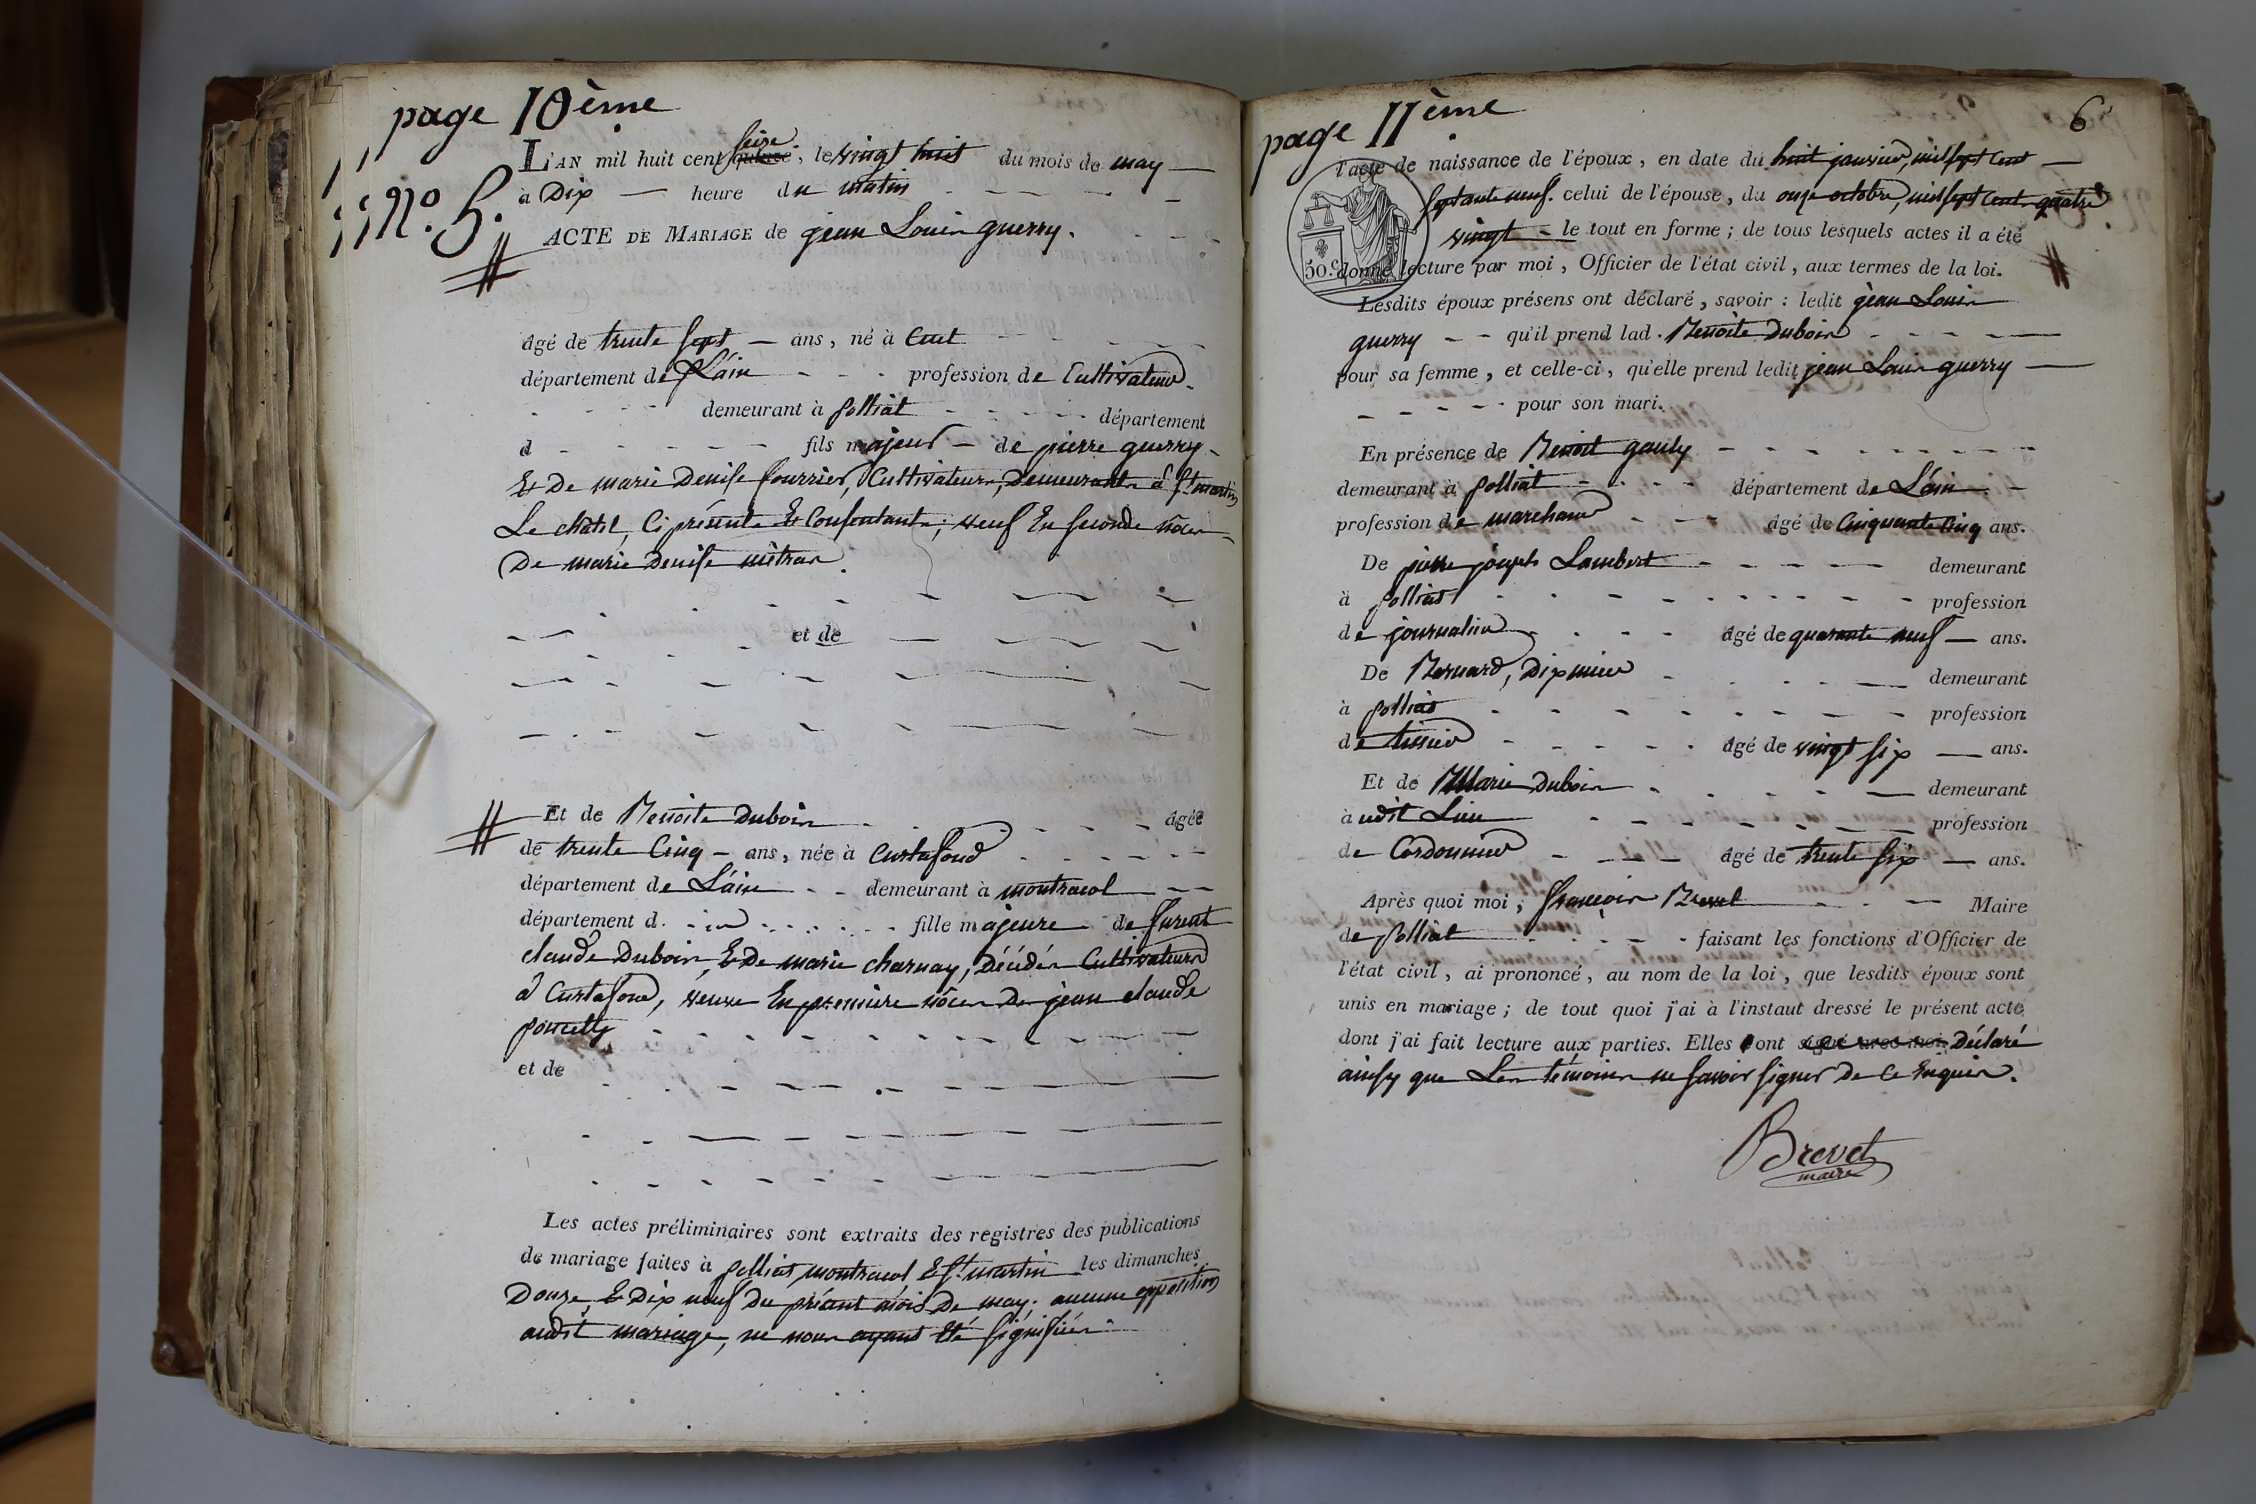 page 10ème
L'AN mil huit cent quinze seize, le vingt huit du mois de may
N.º 5.
à Dix heure du matin
ACTE DE MARIAGE de jean Louis guerry.
âgé de trente sept ans, né à Cuet
département de L'ain profession de Cultivateur
demeurant à polliat département
d fils majeur de pierre guerry
& De marie Denise fourrier, Cultivateurs, Demeurants à St martin
Le chatel, Ci présents & Consentants; veuf En seconde nôces
De marie Denise mitras.
et de
Et de Benoite Dubois âgée
de trente Cinq ans, née à Curtafond
département de L'ain demeurant à montracol
département d fille majeure de furent
claude Dubois, & De marie charnay, Décédés Cultivateurs
à Curtafond, veuve En première nôces De jean claude
poncetty
et de
Les actes préliminaires sont extraits des registres des publications
de mariage faites à polliat, montracol & St martin les dimanches
Douze, & Dix neuf du présent mois De may; aucune opposition
audit mariage, ne nous ayant été signifiée.
page 11ème
6
l'acte de naissance de l'époux, en date du huit janvier, mil sept cent
septante neuf. celui de l'épouse, du onze octobre, mil sept cent quatre
vingt le tout en forme; de tous lesquels actes il a été
50.c
donné lecture par moi, Officier de l'état civil, aux termes de la loi.
Lesdits époux présens ont déclaré, savoir: ledit jean Louis
guerry qu'il prend lad. Benoite Dubois
pour sa femme, et celle-ci, qu'elle prend ledit jean Louis guerry
pour son mari.
En présence de Benoit gauly
demeurant à polliat département de L'ain
profession de marchand âgé de Cinquante Cinq ans.
De pierre joseph Lambert demeurant
à polliat profession
de journalier âgé de quarante neuf ans.
De Bernard, Dixmier demeurant
à polliat profession
de tissier âgé de vingt six ans.
Et de Marie Dubois demeurant
audit Lieu profession
de Cordonnier âgé de trente six ans.
Après quoi moi, françois Brevet Maire
de polliat faisant les fonctions d'Officier de
l'état civil, ai prononcé, au nom de la loi, que lesdits époux sont
unis en mariage; de tout quoi j'ai à l'instant dressé le présent acte
dont j'ai fait lecture aux parties. Elles ont signé avec moi Déclaré
ainsy que Les témoins ne savoir signer De Ce Enquis.
Brevet
maire